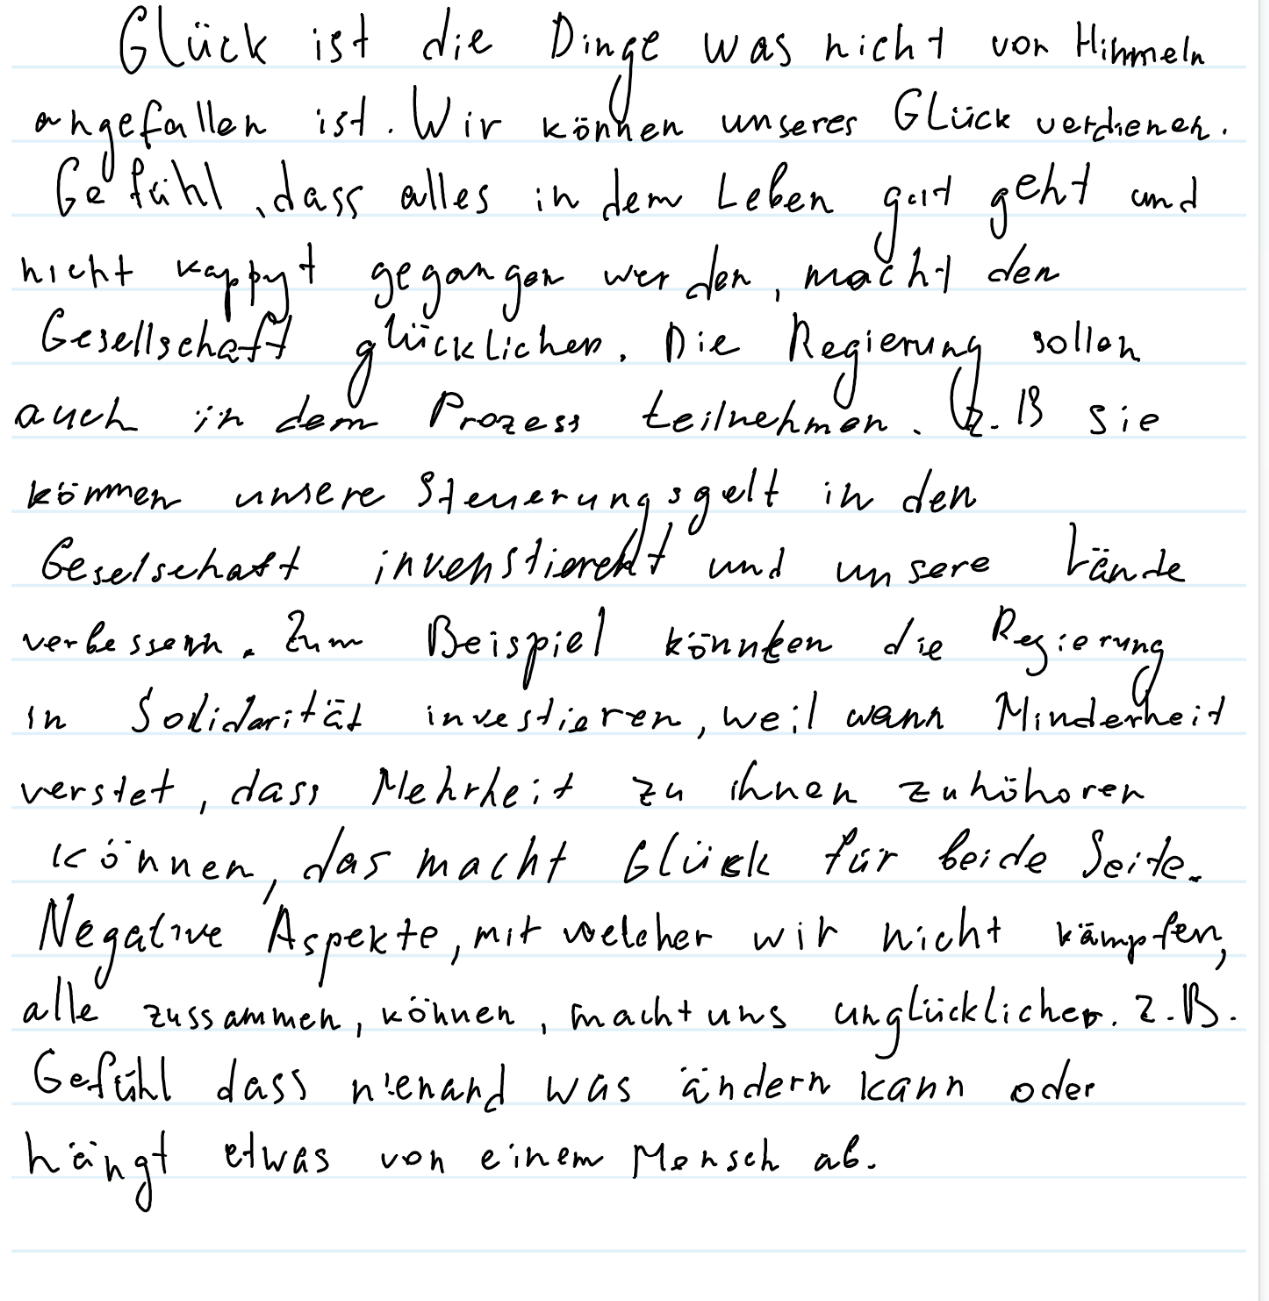 Glück ist die Dinge was nicht von Himmeln
angefallen ist. Wir können unseres Glück verdienen.
Gefühl, dass alles in dem Leben gut geht und
nicht kappyt gegangen werden, macht den
Gesellschaft glücklicher. Die Regierung sollen
auch in dem Prozess teilnehmen. Z.B sie
können unsere Steuerungsgelt in den
Geselschaft invenstieren und unsere Lände
verbessern. Zum Beispiel könnten die Regierung
in Solidarität investieren, weil wann Minderheit
verstet, dass Mehrheit zu ihnen zuhöhoren
können, das macht Glück für beide Seite.
Negative Aspekte, mit welcher wir nicht kämpfen,
alle zussammen, können, macht uns unglücklicher. Z.B.
Gefühl dass nienand was ändern kann oder
hängt etwas von einem Mensch ab.